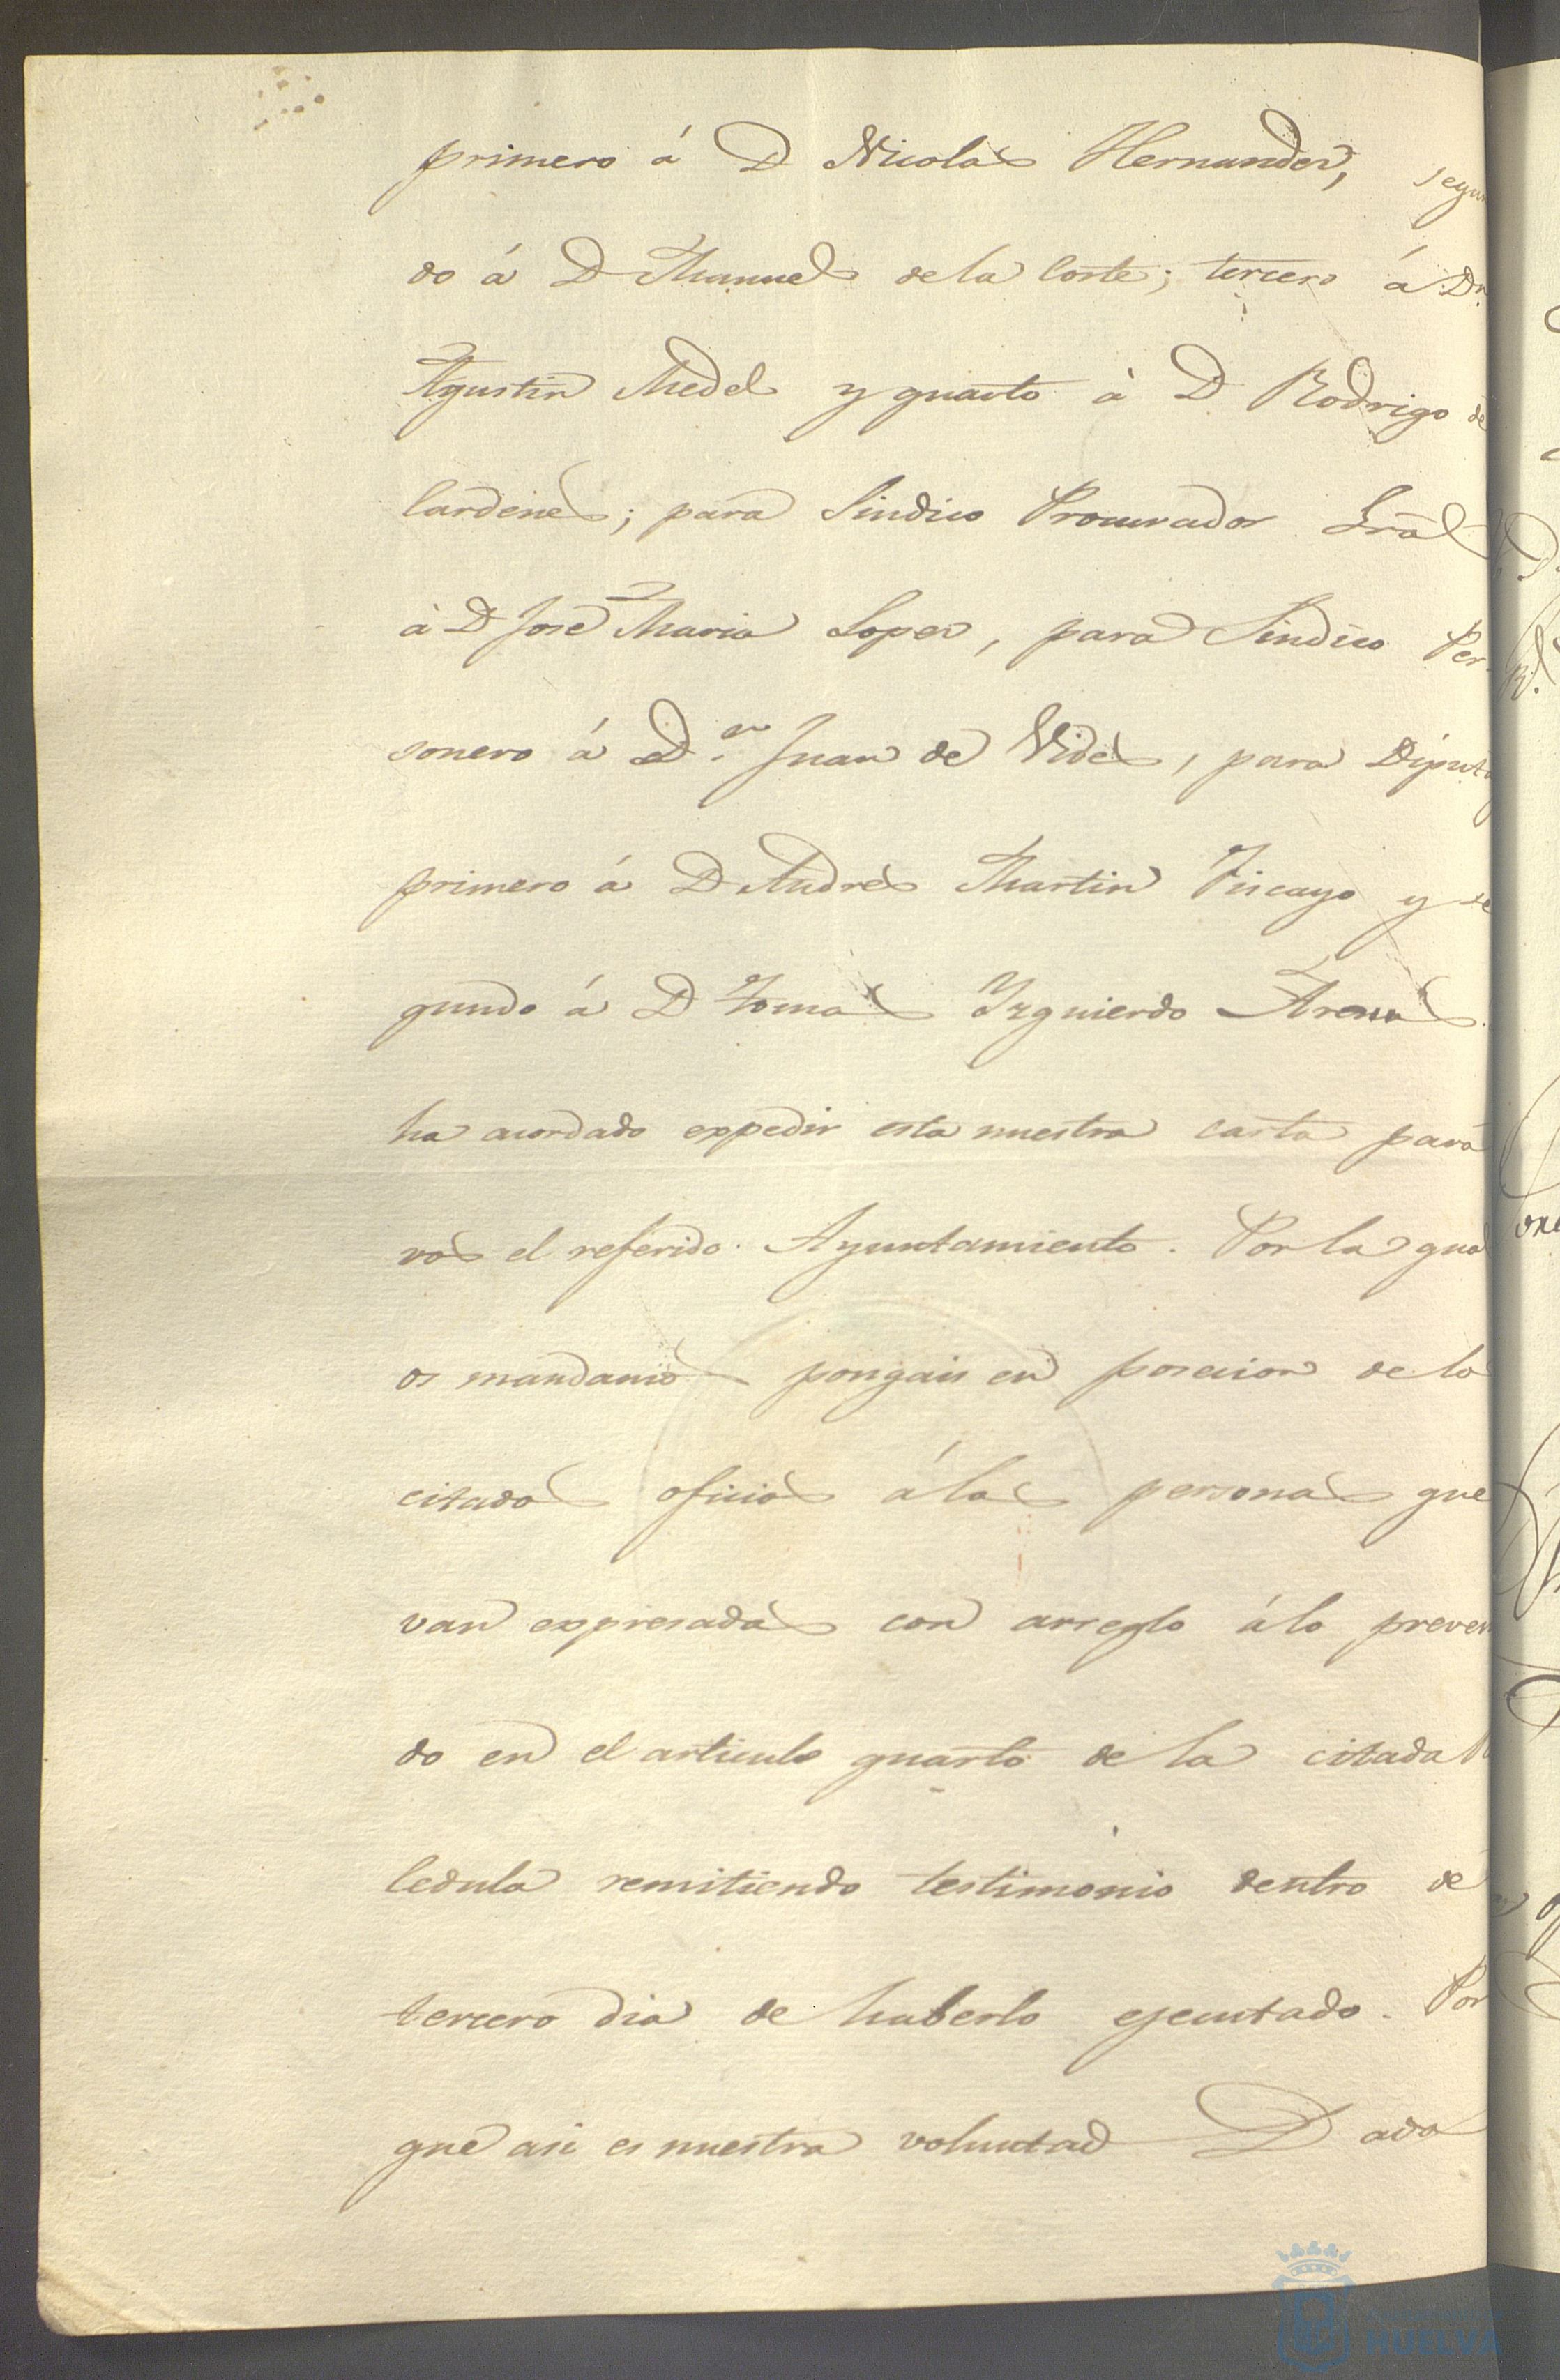 primero á D Nicolas Hernandez, segun
do á D Manuel de la Corte; tercero á Dn
Agustin Medel y quarto à D Rodrigo de
Cardenes; para Sindico Procurador Gral
à D José Maria Lopez, para Sindico Per
sonero á D.n Juan de Vides, para Diputo
primero á D Andres Martin Viscayo y se
gundo á D Tomas Yzquierdo Arenas
ha acordado expedir esta nuestra carta para
vos el referido Ayuntamiento. Por la qual
os mandamos pongais en posecion de los
citados oficios á las personas que
van expresadas con arreglo á lo preveni
do en el articulo quarto de la citada
Cedula remitiendo testimonio dentro de
tercero dia de haberlo ejecutado. Por
que asi es nuestra voluntad Dada
HUELVA